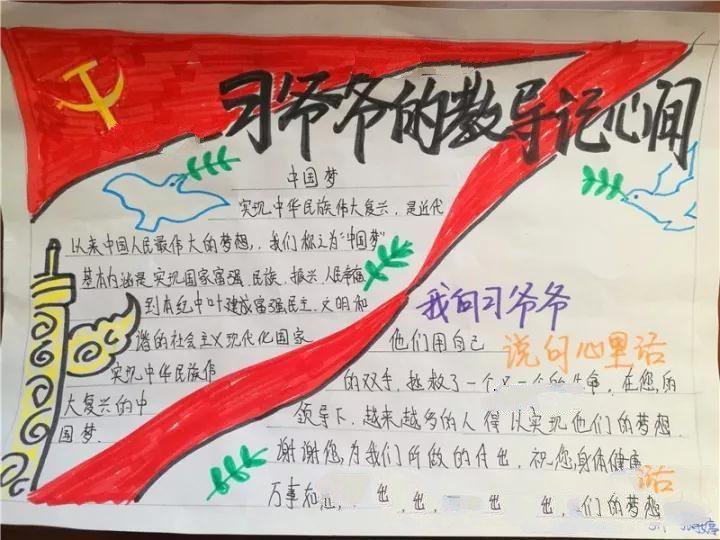 习爷爷的教导记心间
中国梦
实现中华民族伟大复兴，是近代
以来中国人民最伟大的梦想，我们称之为“中国梦”
基本内涵是实现国家富强、民族、振兴、人民幸福
到本纪中叶建成富强民主、文明和
谐的社会主义现代化国家
实现中华民族伟
大复兴的中
国梦.
我向习爷爷
说句心里话
他们用自己
的双手，拯救了一个又一个的生命，在您的
领导下，越来越多的人得以实现他们的梦想.
谢谢您,为我们所做的付出，祝您,身体健康
话
万事 出，出， 出 出，们的梦想